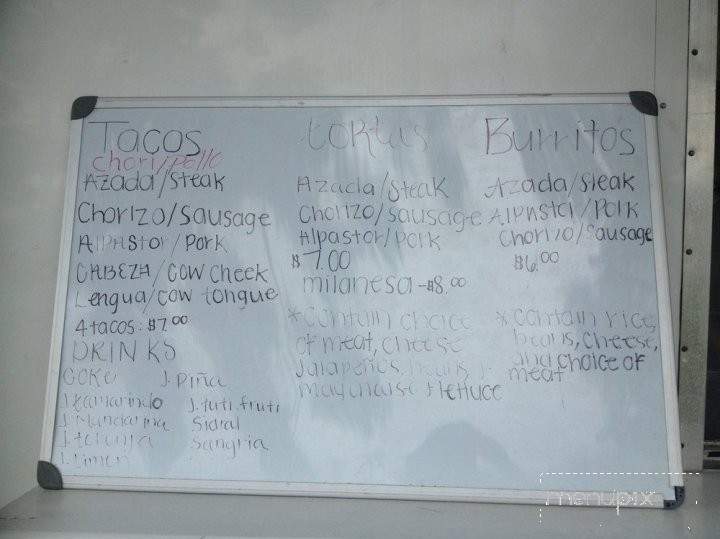 Tacos
chori/pollo
Azada/steak
Chorizo/sausage
Alpastor/pork
CABEZA/cow cheek
Lengua/cow tongue
4 tacos: $7.00
DRINKS
COKE
J. Piña
J. tamarindo
J. tuti.fruti
J. Mandarina
Sidral
Sangria
J. Limon
tortas
Azada/steak
Chorizo/sausage
Alpastor/pork
$7.00
milanesa - $8.00
*contain choice
of meat, cheese
Jalapeños, beans,
mayonaise + lettuce
Burritos
Azada/steak
Alpastor/pork
Chorizo/sausage
$6.00
*contain rice,
beans, cheese,
and choice of
meat
menupix